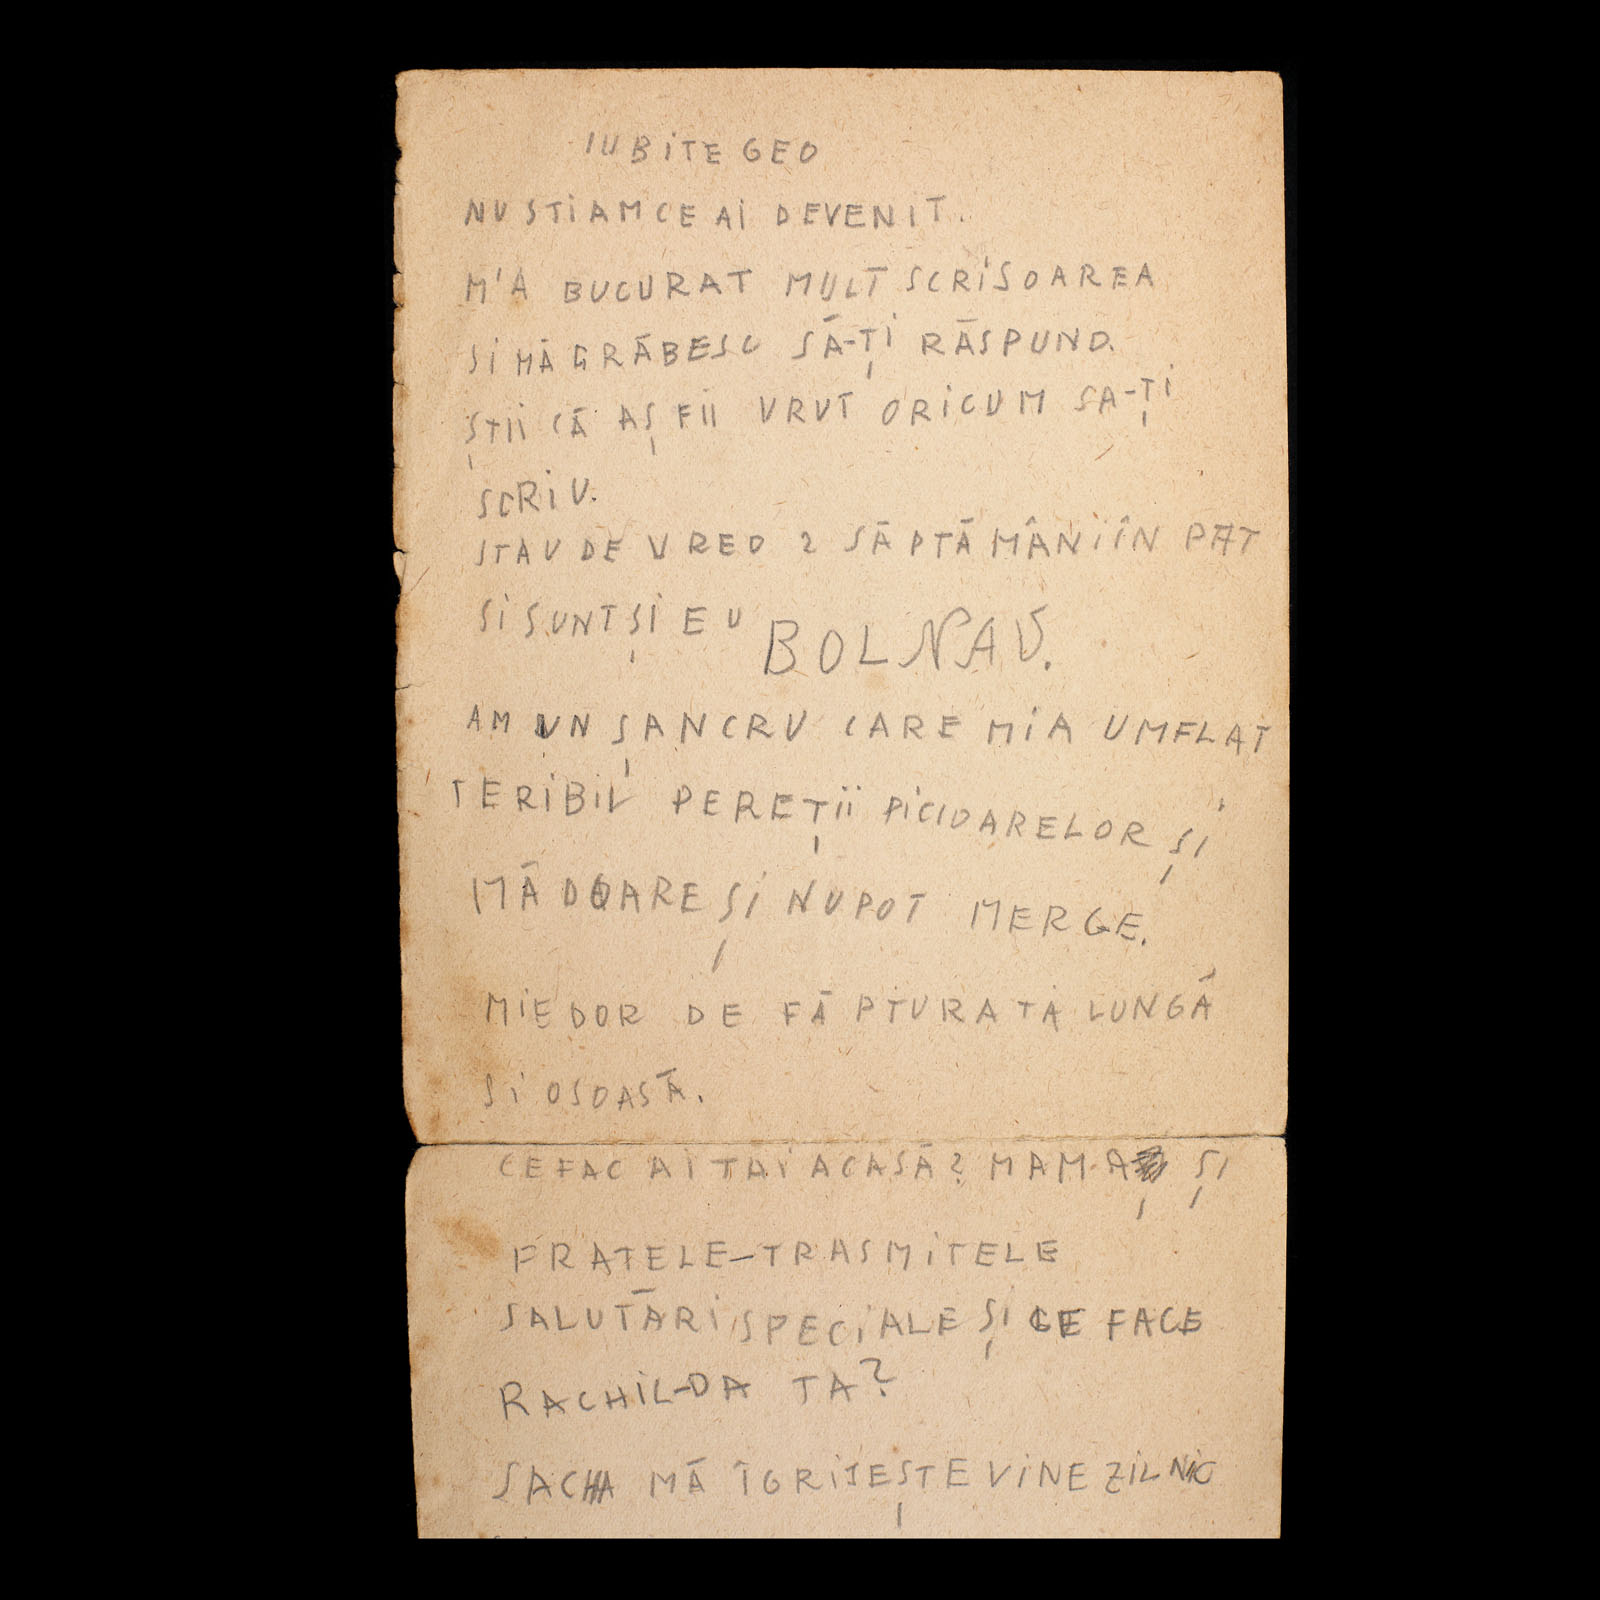 IUBITE GEO
NU STIAM CE AI DEVENIT.
M'A BUCURAT MULT SCRISOAREA
SI MĂ GRĂBESC SĂ-ȚI RĂSPUND.
ȘTII CĂ AȘ FII VRUT ORICUM SA-ȚI
SCRIU.
STAU DE VREO 2 SĂPTĂMÂNI ÎN PAT
SI SUNT ȘI EU BOLNAV.
AM UN ȘANCRU CARE MIA UMFLAT
TERIBIL PEREȚII PICIOARELOR ȘI
MĂ DOARE ȘI NU POT MERGE.
MIE DOR DE FĂPTURA TA LUNGĂ
SI OSOASĂ.
CE FAC AI TĂI ACASĂ? MAMA ȘI
FRATELE-TRASMITELE
SALUTĂRI SPECIALE ȘI CE FACE
RACHIL-DA TA?
SACHA MĂ ÎGRIJEȘTE VINE ZILNIC